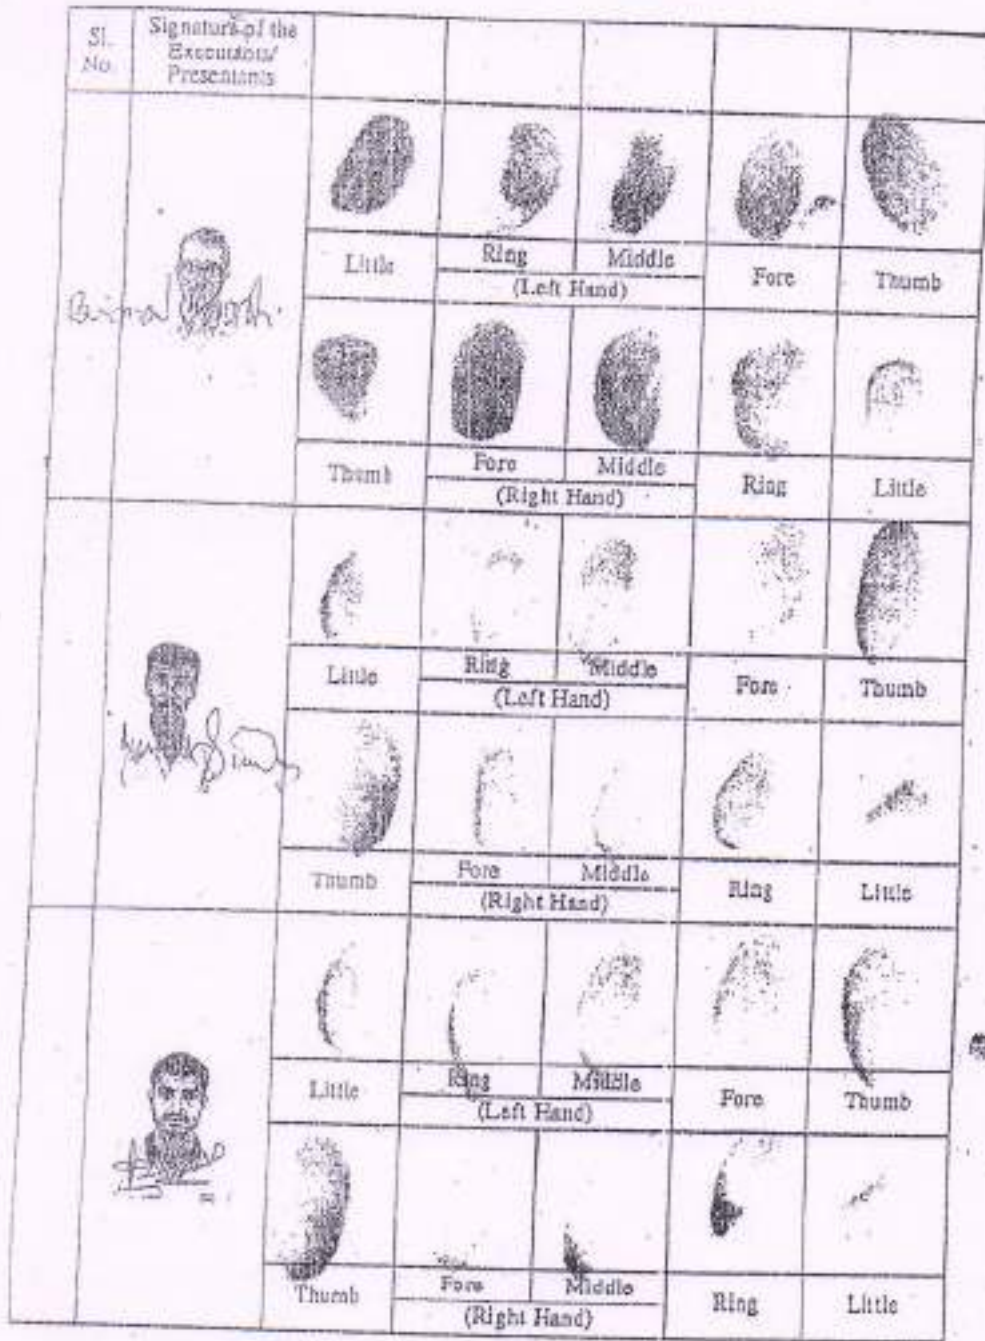 Sl. No.
Signature of the
Executants/
Presentants
Little Ring Middle Fore Thumb
(Left Hand)
Thumb Fore Middle Ring Little
(Right Hand)
Little Ring Middle Fore Thumb
(Left Hand)
Thumb Fore Middle Ring Little
(Right Hand)
Little Ring Middle Fore Thumb
(Left Hand)
Thumb Fore Middle Ring Little
(Right Hand)